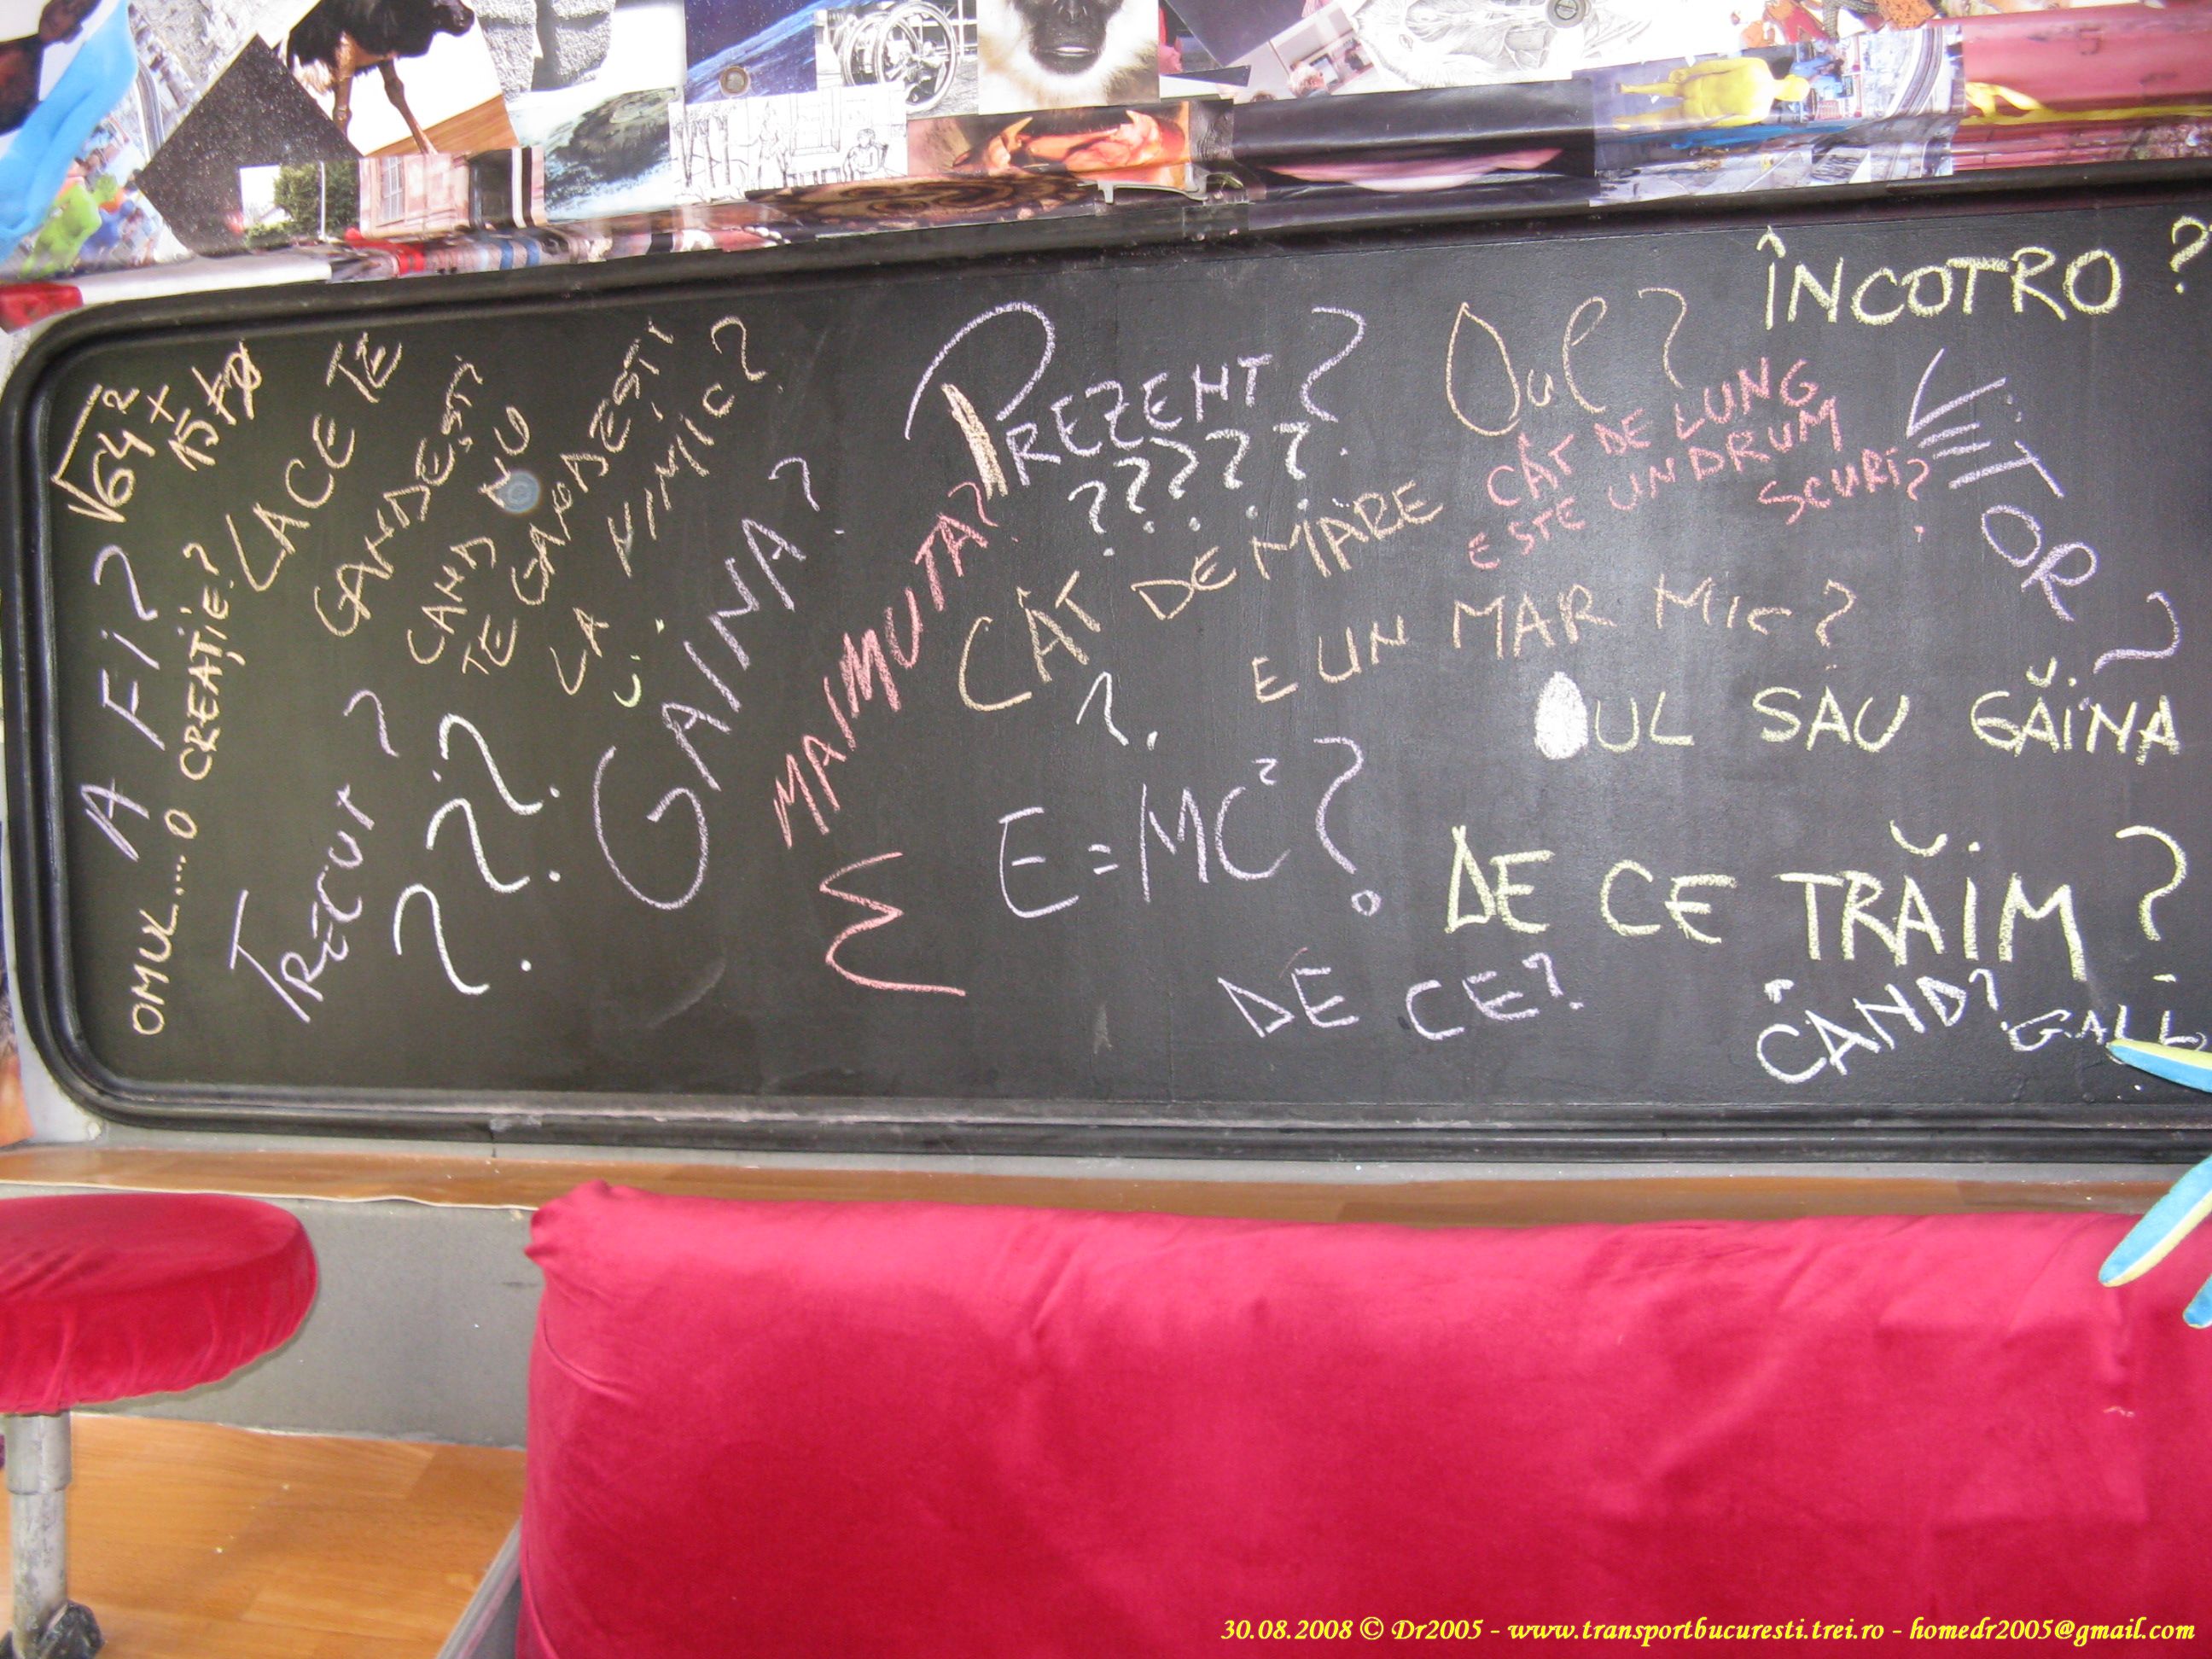 √64² +
A FI?
OMUL....O CREAȚIE?
LA CE TE
GANDEȘTI
CAND NU
TE GANDEȘTI
LA NIMIC?
TRECUT?
???
GAINA?
MAIMUTA?
PREZENT?
?????
OUL?
ÎNCOTRO?
CÂT DE LUNG
ESTE UN DRUM
SCURT?
VIITOR?
CÂT DE MARE
E UN MAR MIC?
?
OUL SAU GĂINA
Σ
E=MC²?
DE CE TRĂIM?
DE CE?
CÂND?
30.08.2008 © Dr2005 - www.transportbucuresti.trei.ro - homedr2005@gmail.com